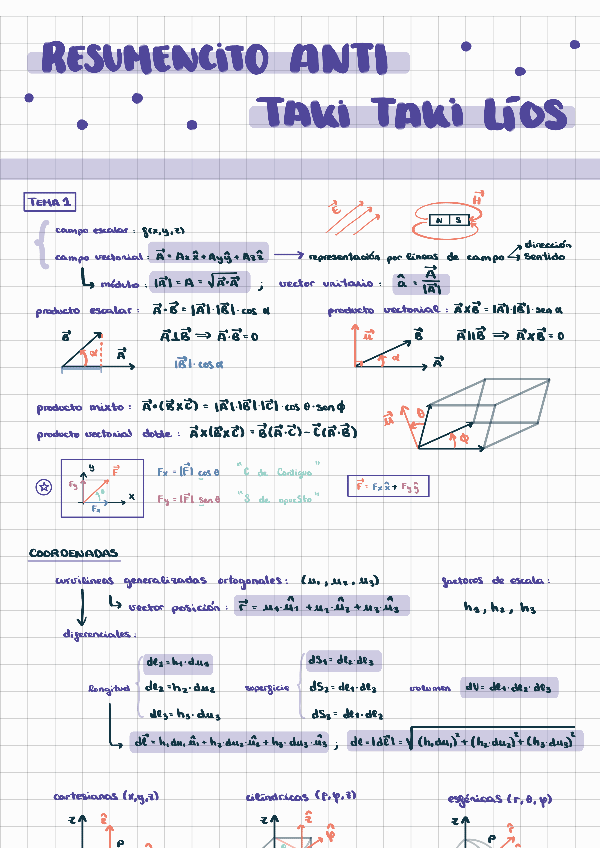 RESUMENCITO ANTI
TAKI TAKI LÍOS
TEMA 1
campo escalar: f(x,y,z)
E⃗
N S
H⃗
campo vectorial: A⃗ = Ax x̂ + Ay ŷ + Az ẑ → representación por líneas de campo
dirección
sentido
módulo: |A⃗| = A = √A⃗·A⃗ ; vector unitario: â = A⃗/|A⃗|
producto escalar: A⃗·B⃗ = |A⃗|·|B⃗|·cos α
producto vectorial: A⃗xB⃗ = |A⃗|·|B⃗|·sen α
B⃗ α A⃗
A⃗⊥B⃗ ⟹ A⃗·B⃗ = 0
|B⃗|·cos α
û B⃗ α A⃗
A⃗||B⃗ ⟹ A⃗xB⃗ = 0
producto mixto: A⃗·(B⃗xC⃗) = |A⃗|·|B⃗|·|C⃗|·cos θ·sen ϕ
producto vectorial doble: A⃗x(B⃗xC⃗) = B⃗(A⃗·C⃗) − C⃗(A⃗·B⃗)
θ ϕ
y F⃗ Fy θ Fx x
Fx = |F⃗| cos θ "C de Contiguo"
Fy = |F⃗| sen θ "S de opueSto"
F⃗ = Fx x̂ + Fy ŷ
COORDENADAS
curvilíneas generalizadas ortogonales: (u₁, u₂, u₃)
factores de escala:
vector posición: r⃗ = u₁·û₁ + u₂·û₂ + u₃·û₃
h₁, h₂, h₃
diferenciales:
dl₁ = h₁·du₁
dS₁ = dl₂·dl₃
longitud dl₂ = h₂·du₂
superficie dS₂ = dl₁·dl₃
volumen dV = dl₁·dl₂·dl₃
dl₃ = h₃·du₃
dS₃ = dl₁·dl₂
dl⃗ = h₁du₁û₁ + h₂·du₂·û₂ + h₃·du₃·û₃ ; dl = |dl⃗| = √(h₁du₁)² + (h₂·du₂)² + (h₃·du₃)²
cartesianas (x,y,z)
cilíndricas (ρ,φ,z)
esféricas (r,θ,φ)
z ẑ P
z ẑ φ̂
z P r̂